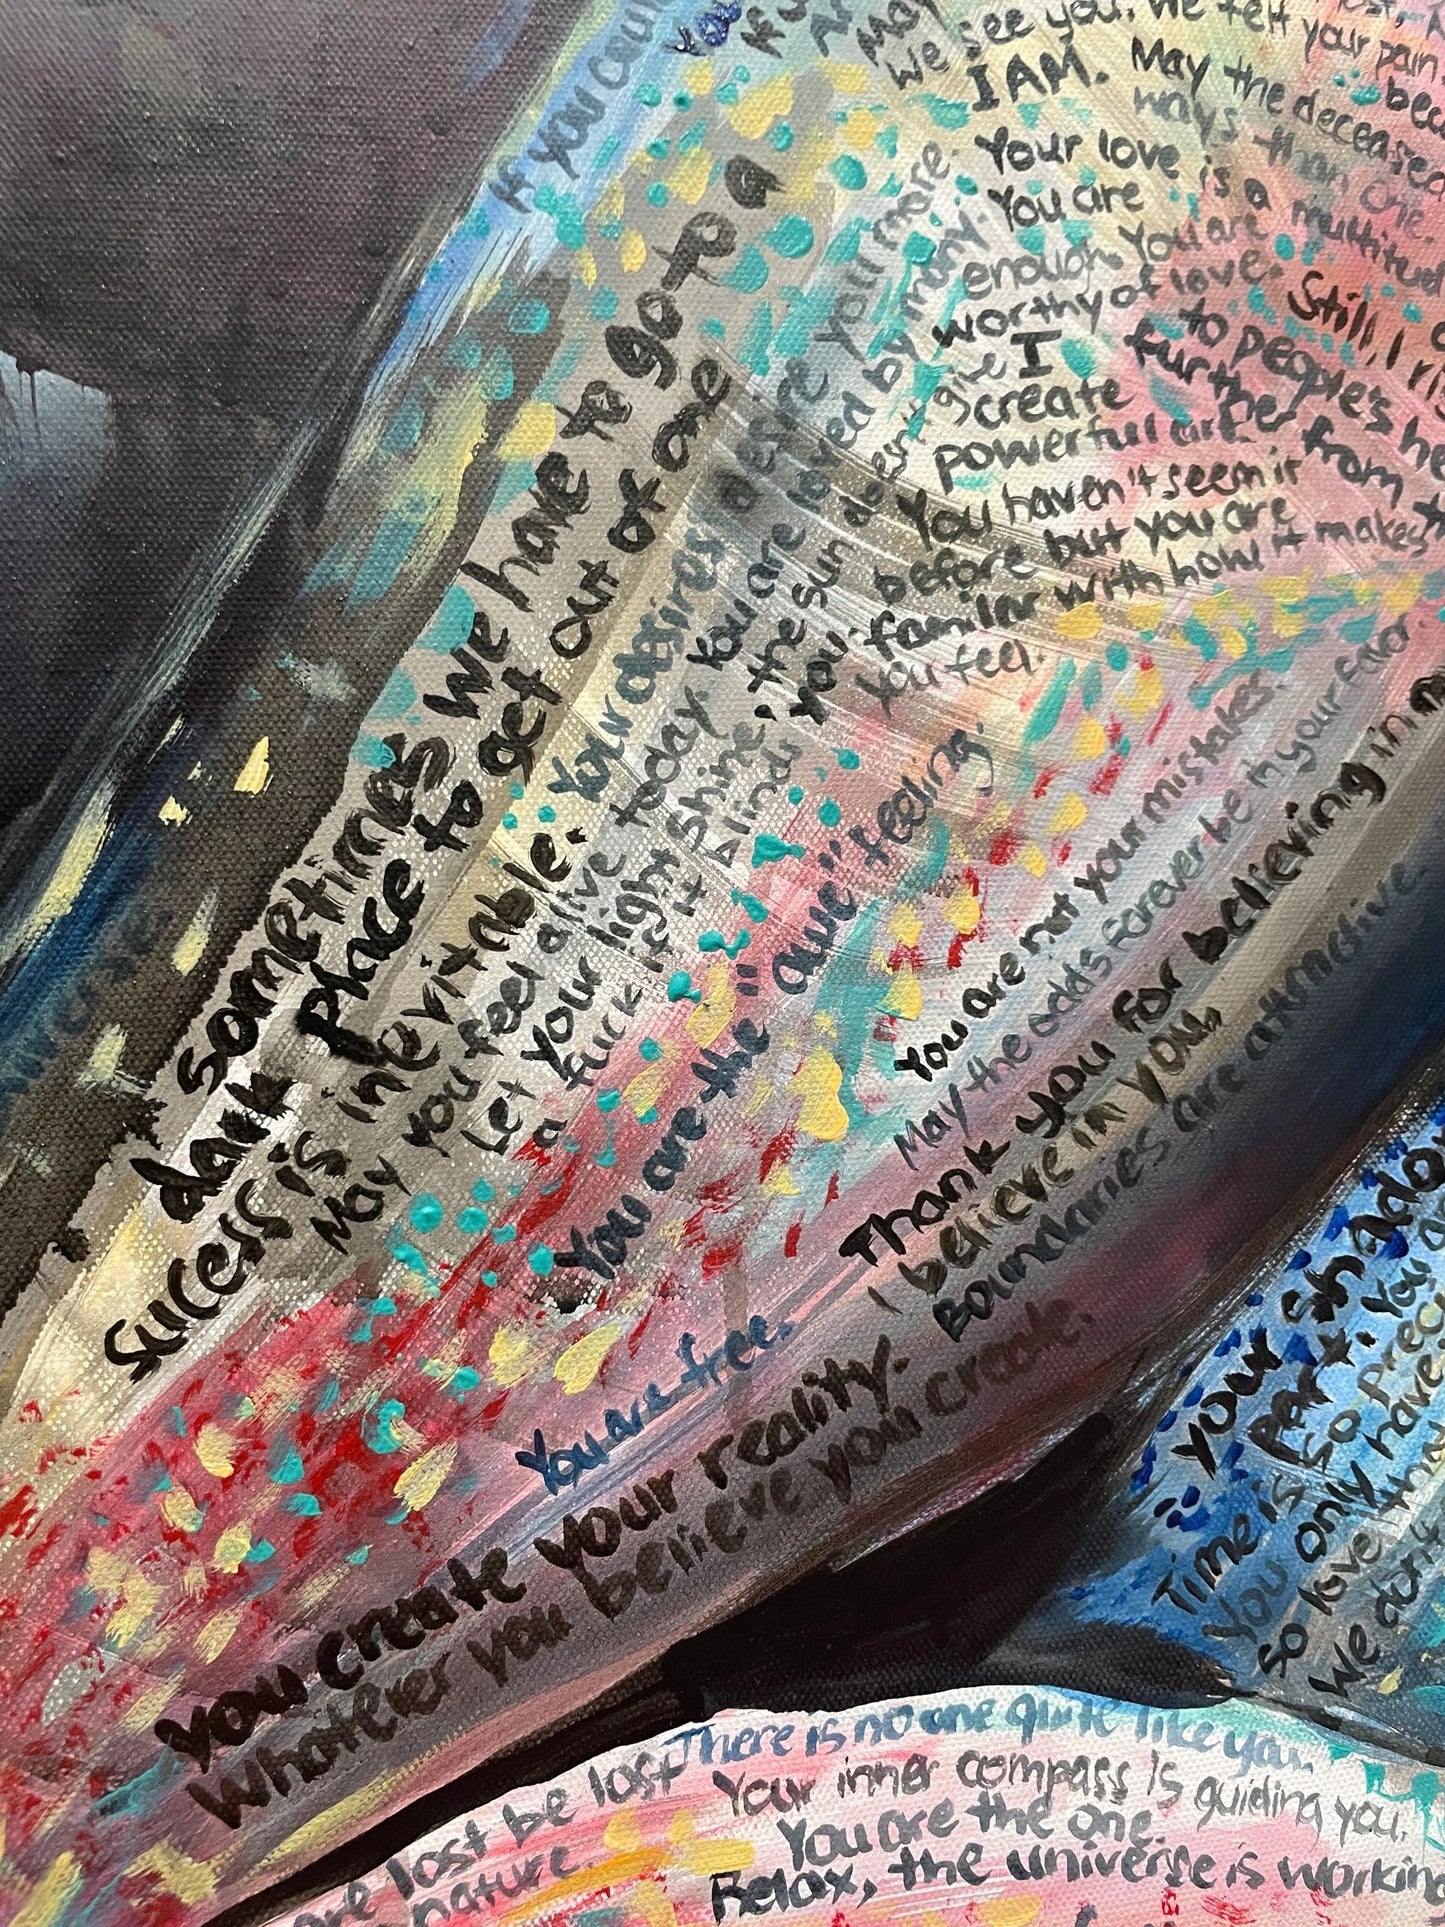 If you
If
may
We see you, We felt your pain
I AM. May the deceased
ways than one.
Your love is a multitud
You are
enough. You are
worthy of love. Still, I ri
I
create
powerful art
further from
to people's he
You haven't seem it
before but you are
familar with how it makes
you feel.
sometimes we have to go to a
dark place to get out of one
success is inevitable.
Your desires desire you more.
May you feel alive today. You are loved by many.
Let your light shine, the sun doesn't give
a fuck if it blinds you.
You are the "awe" feeling.
You are not your mistakes.
May the odds forever be in your favor.
Thank you for believing in m
I believe in you.
Boundaries are attractive.
You are free.
you create your reality.
Whatever you believe you create.
Your shadow
part. You are
Time is so preci
You only have
so love that
We don't
There is no one quite like you.
Your inner compass is guiding you.
You are the one.
Relax, the universe is working
lost be lost
nature.